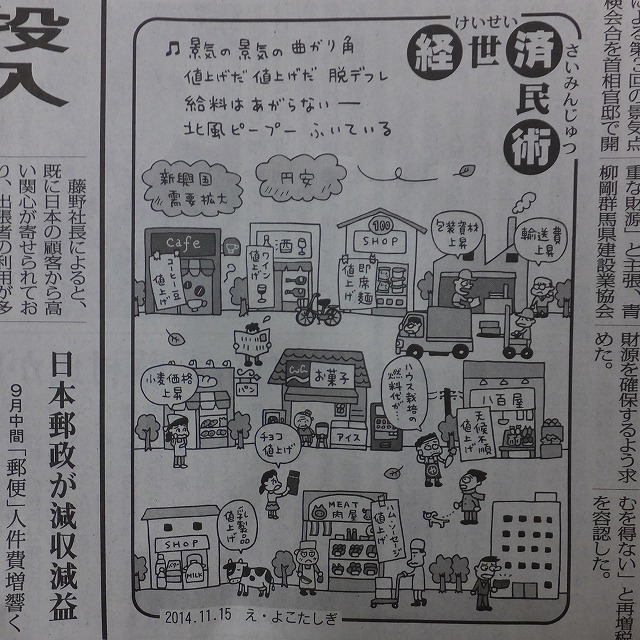 けいせい
さいみんじゅつ
経世済民術
♫景気の景気の曲がり角
値上げだ 値上げだ 脱デフレ
給料はあがらない―
北風ピープー ふいている
新興国
需要拡大
円安
cafe
コーヒー豆
値上げ
酒
ワイン
値上げ
100
SHOP
即席麺
値上げ
包装資材
上昇
輸送費
上昇
小麦価格
上昇
パン
お菓子
アイス
チョコ
値上げ
ハウス栽培の
燃料代が…
八百屋
天候不順
値上げ
SHOP
MILK
乳製品
値上げ
MEAT
肉屋
ハム・ソーセージ
値上げ
2014.11.15 え・よこたしぎ
投入
藤野社長によると、
既に日本の顧客から高
い関心が寄せられてお
り、出張者の利用が多
日本郵政が減収減益
9月中間「郵便」人件費増響く
による第3回の景気点
検会合を首相官邸で開
重な財源」と主張、青
柳剛群馬県建設業協会
財源を確保するよう求
めた。
むを得ない」と再増税
を容認した。